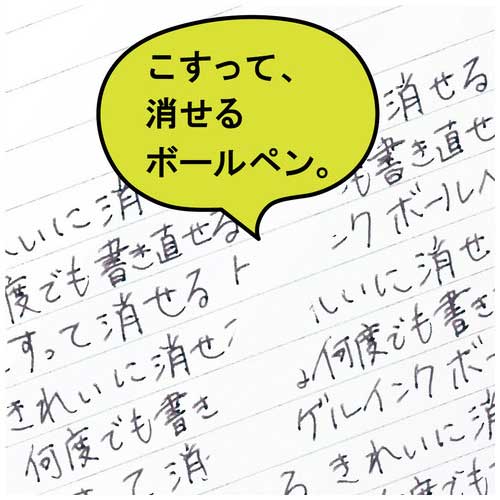 こすって、
消せる
ボールペン。
消せる
も書き直せ
ンク ボールペ
れいに消
度でも書き直せる
すって消せるト
いいに消せ
何度でも書き
ゲルインクボー
きれいに消せ
何度でも書き
て消
る きれいに消
何度でも